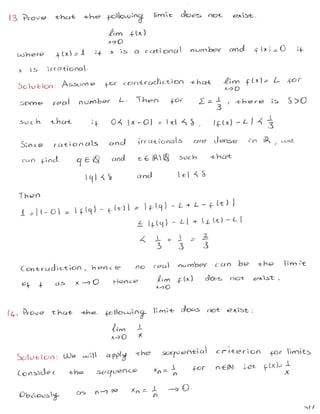 13. Prove that the following limit does not exist.
lim f(x)
x→0
where f(x)=1 if x is a rational number and f(x)=0 if
x is irrational.
Solution: Assume for contradiction that lim f(x)= L for
x→0
some real number L. Then for ε = 1/3, there is δ>0
such that if 0< |x-0| = |x| < δ, |f(x)-L| < 1/3
Since rationals and irrationals are dense in ℝ, we
can find q∈ℚ and t∈ℝ\ℚ such that
|q| < δ and |t| < δ
Then
1 = |1-0| = |f(q) - f(t)| = |f(q) - L + L - f(t)|
≤ |f(q) - L| + |f(t)-L|
< 1/3 + 1/3 = 2/3
Contradiction, hence no real number can be the limit
of f as x→0. Hence lim f(x) does not exist.
x→0
14. Prove that the following limit does not exist:
lim 1/x
x→0
Solution: We will apply the sequential criterion for limits
Consider the sequence xn = 1/n for n∈ℕ. Let f(x)= 1/x
Obviously as n→∞ xn = 1/n → 0.